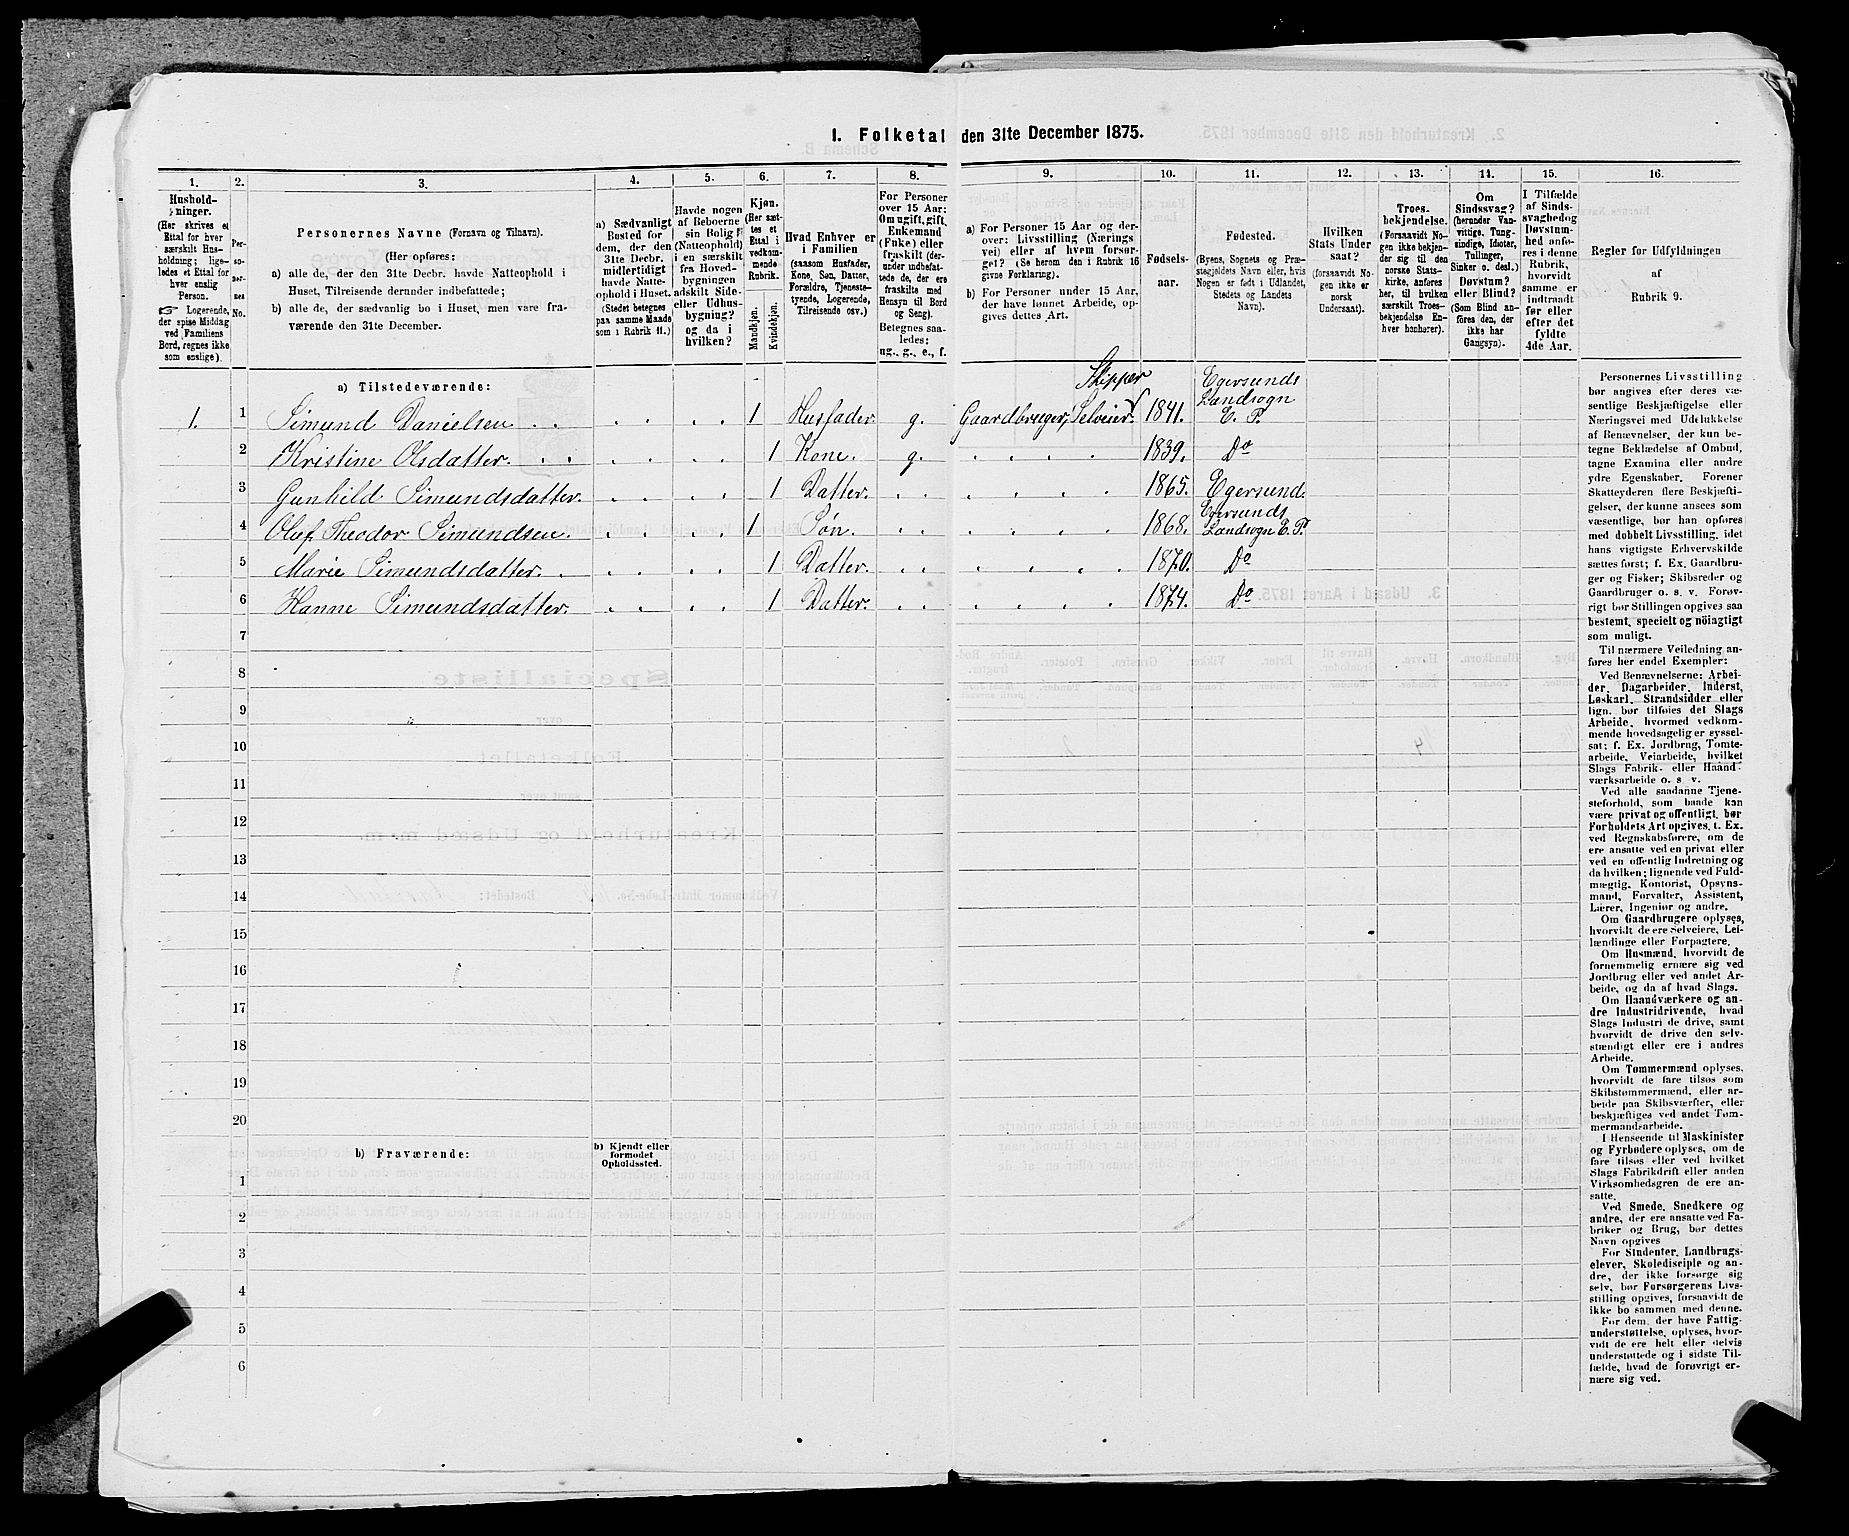 1. Folketal den 31te December 1875.
1. 2. 3. 4. 5. 6. 7. 8. 9. 10. 11. 12. 13. 14. 15. 16.
Hushold-
ninger.
(Her skrives et
Ettal for hver
særskilt Hus-
holdning; lige-
ledes et Ettal for
hver enslig
Person.
☞ Logerende,
der spise Middag
ved Familiens
Bord, regnes ikke
som enslige).
Per-
so-
ner-
nes
No.
Personernes Navne (Fornavn og Tilnavn).
(Her opføres:
a) alle de, der den 31te Decbr. havde Natteophold i
Huset, Tilreisende derunder indbefattede;
b) alle de, der sædvanlig bo i Huset, men vare fra-
værende den 31te December.
a) Sædvanligt
Bosted for
dem, der den
31te Decbr.
midlertidigt
havde Natte-
ophold i Huset.
(Stedet betegnes
paa samme Maade
som i Rubrik 11.)
Havde nogen
af Beboerne
sin Bolig
(Natteophold)
i en særskilt
fra Hoved-
bygningen
adskilt Side-
eller Udhus-
bygning?
og da i
hvilken?
Kjøn.
(Her sæt-
tes et
Ettal i
vedkom-
mende
Rubrik.
Mandkjøn.
Kvindekjøn.
Hvad Enhver er
i Familien
(saasom Husfader,
Kone, Søn, Datter,
Forældre, Tjeneste-
tyende, Logerende,
Tilreisende osv.)
For Personer
over 15 Aar:
Om ugift, gift,
Enkemand
(Enke) eller
fraskilt (der-
under indbefat-
tede de, der ere
fraskilte med
Hensyn til Bord
og Seng).
Betegnes saa-
ledes:
ug., g., e., f.
a) For Personer 15 Aar og der-
over: Livsstilling (Nærings
vei) eller af hvem forsør-
get? (Se herom den i Rubrik 16
givne Forklaring).
b) For Personer under 15 Aar,
der have lønnet Arbeide, op-
gives dettes Art.
Fødsels-
aar.
Fødested.
(Byens, Sognets og Præ-
stegjeldets Navn eller, hvis
Nogen er født i Udlandet,
Stedets og Landets
Navn).
Hvilken
Stats Under
saat?
(forsaavidt No-
gen ikke er
norsk
Undersaat).
Troes-
bekjendelse.
(Forsaavidt No-
gen ikke bekjen-
der sig til den
norske Stats-
kirke, anføres
her, til hvilken
særskilt Troes-
bekjendelse En-
hver henhører).
Om
Sindssvag?
(herunder Van-
vittige, Tung-
sindige, Idioter,
Tullinger,
Sinker o. desl.)
Døvstum?
eller Blind?
(Som Blind an-
føres den, der
ikke har
Gangsyn).
I Tilfælde
af Sinds-
svaghed og
Døvstum-
hed anfø-
res i denne
Rubrik,
hvorvidt
samme er
indtraadt
før eller
efter det
fyldte
4de Aar.
Regler for Udfyldningen
af
Rubrik 9.
a) Tilstedeværende:
Skipper
1. 1 Simund Danielsen . . . . . . 1 Husfader g. Gaardbruger, Selveier 1841. Egersunds Landsogn E. P.
2 Kristine Olsdatter. . . . . . . 1 Kone g. . . . . 1839. Do
3 Gunhild Simundsdatter. . . . . 1 Datter. . . . . . . 1865. Egersund.
4 Oluf Theodor Simundsen. . . . . 1 Søn . . . . . . 1868. Egersunds Landsogn E. P.
5 Marie Simundsdatter. . . . . . 1 Datter. . . . . . . 1870. Do
6 Hanne Simundsdatter. . . . . 1 Datter. . . . . . . 1874. Do
7
8
9
10
11
12
13
14
15
16
17
18
19
20
b) Fraværende:
b) Kjendt eller
formodet
Opholdssted.
1
2
3
4
5
6
Personernes Livsstilling
bør angives efter deres væ-
sentlige Beskjæftigelse eller
Næringsvei med Udelukkelse
af Benævnelser, der kun be-
tegne Beklædelse af Ombud,
tagne Examina eller andre
ydre Egenskaber. Forener
Skatteyderen flere Beskjæfti-
gelser, der kunne ansees som
væsentlige, bør han opføres
med dobbelt Livsstilling, idet
hans vigtigste Erhvervskilde
sættes først; f. Ex. Gaardbru-
ger og Fisker; Skibsreder og
Gaardbruger o. s. v. Forøv-
rigt bør Stillingen opgives saa
bestemt, specielt og nöiagtigt
som muligt.
Til nærmere Veiledning an-
føres her endel Exempler:
Ved Benævnelserne: Arbei-
der, Dagarbeider, Inderst,
Løskarl, Strandsidder eller
lign. bør tilføies det Slags
Arbeide, hvormed vedkom-
mende hovedsagelig er syssel-
sat; f. Ex. Jordbrug, Tomte-
arbeide, Veiarbeide, hvilket
Slags Fabrik- eller Haand-
værksarbeide o. s. v.
Ved alle saadanne Tjene-
steforhold, som baade kan
være privat og offentligt, bør
Forholdets Art opgives, t. Ex.
ved Regnskabsførere, om de
ere ansatte ved en privat eller
ved en offentlig Indretning og
da hvilken; lignende ved Fuld-
mægtig, Kontorist, Opsyns-
mand, Forvalter, Assistent,
Lærer, Ingeniør og andre.
Om Gaardbrugere oplyses,
hvorvidt de ere Selveiere, Lei-
lændinge eller Forpagtere.
Om Husmænd, hvorvidt de
fornemmelig ernære sig ved
Jordbrug eller ved andet Ar-
beide, og da af hvad Slags.
Om Haandværkere og an-
dre Industridrivende, hvad
Slags Industri de drive, samt
hvorvidt de drive den selv-
stændigt eller ere i andres
Arbeide.
Om Tømmermænd oplyses,
hvorvidt de fare tilsøs som
Skibstømmermænd, eller ar-
beide paa Skibsværfter, eller
beskjæftiges ved andet Tøm-
mermandsarbeide.
I Henseende til Maskinister
og Fyrbødere oplyses, om de
fare tilsøs eller ved hvilket
Slags Fabrikdrift eller anden
Virksomhedsgren de ere an-
satte.
Ved Smede, Snedkere og
andre, der ere ansatte ved Fa-
briker og Brug, bør dettes
Navn opgives
For Studenter, Landbrugs-
elever, Skoledisciple og an-
dre, der ikke forsørge sig
selv, bør Forsørgerens Livs-
stilling opgives, forsaavidt de
ikke bo sammen med denne.
For dem, der have Fattig-
understøttelse, oplyses, hvor-
vidt de ere helt eller delvis
understøttede og i sidste Til-
fælde, hvad de forøvrigt er-
nære sig ved.